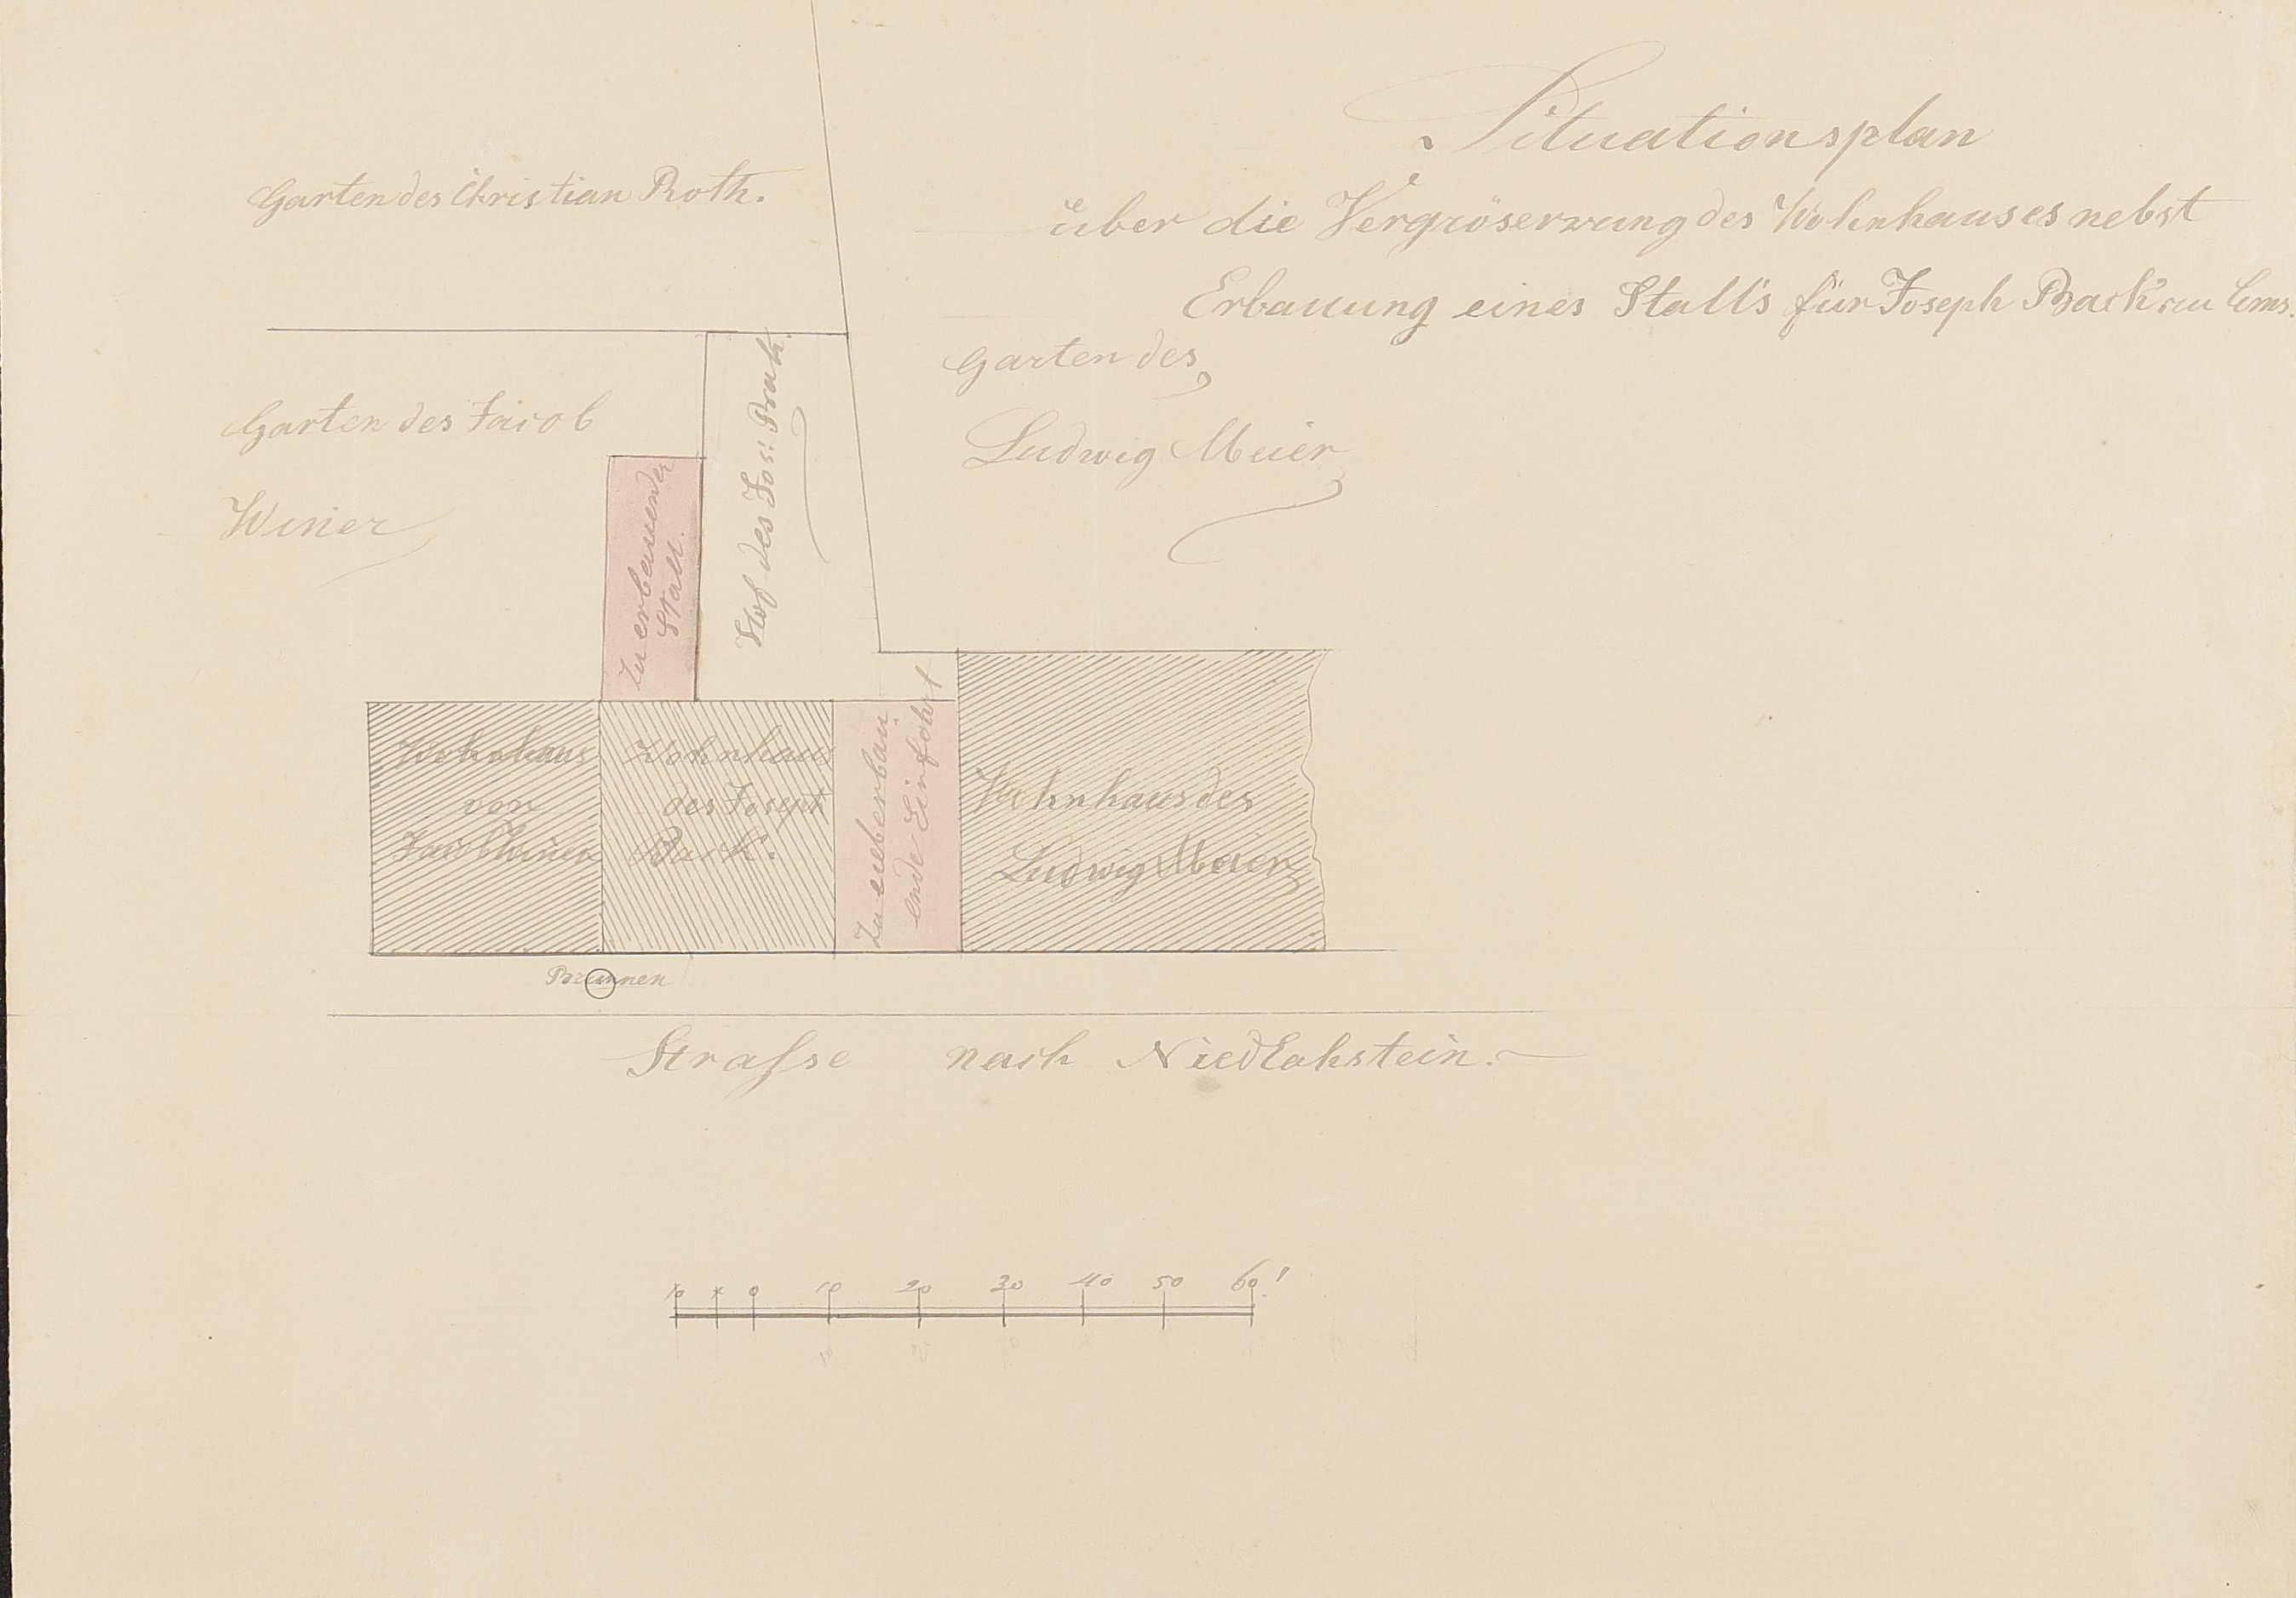 Situationsplan
über die Vergröserrung des Wohnhauses nebst
Erbauung eines Stall's für Joseph Back zu Ems.
Garten des Christian Roth.
Garten des Jacob
Winer
Garten des
Ludwig Meier
Hof des Jos: Back.
Zu erbauender
Stall.
Wohnhaus
von
Jacob Winer
Wohnhaus
des Joseph
Back.
Zu überbau
ende Einfahrt
Wohnhaus des
Ludwig Meier
Brunnen
Strasse nach Niedlahstein.
10 0 10 20 30 40 50 60'